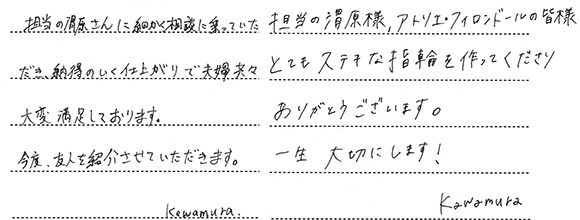 担当の渭原さんに細かく相談に乗っていた
だき、納得のいく仕上がりで夫婦共々
大変満足しております。
今度、友人を紹介させていただきます。
Kawamura.
担当の渭原様，アトリエ・フィロンドールの皆様
とてもステキな指輪を作ってくださり
ありがとうございます。
一生 大切にします！
Kawamura